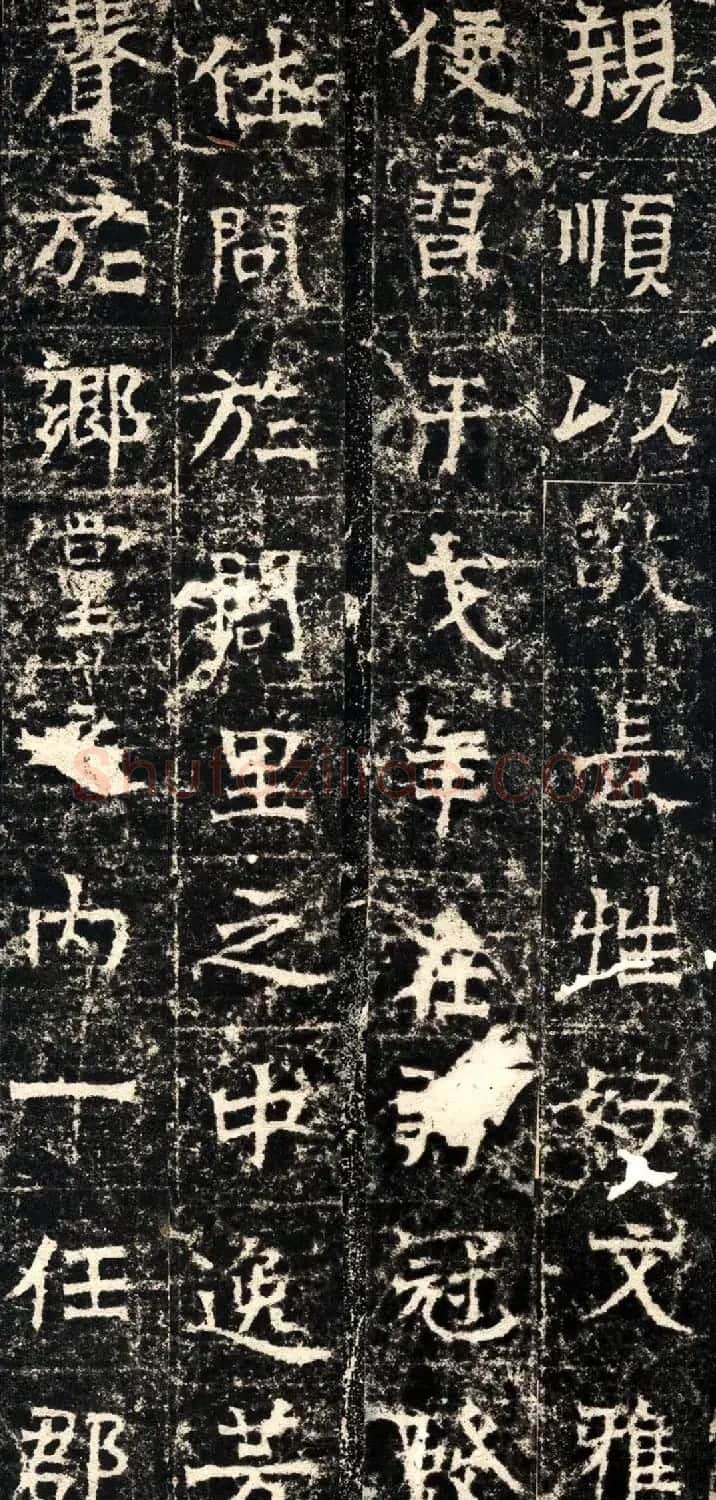 親順以敬長性好文雅
便習干戈年在冠發
佳問於閭里之中逸芳
聲於鄉堂之內一任郡
Shufaziliao.COM